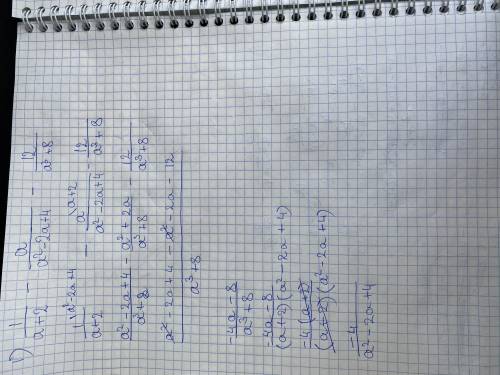 1) 1/(a+2) - a/(a²-2a+4) - 12/(a³+8)
1\a²-2a+4/(a+2) - a\a+2/(a²-2a+4) - 12/(a³+8)
(a²-2a+4)/(a³+8) - (a²+2a)/(a³+8) - 12/(a³+8)
(a²-2a+4-a²-2a-12)/(a³+8)
(-4a-8)/(a³+8)
(-4a-8)/((a+2)(a²-2a+4))
-4(a+2)/((a+2)(a²-2a+4))
-4/(a²-2a+4)